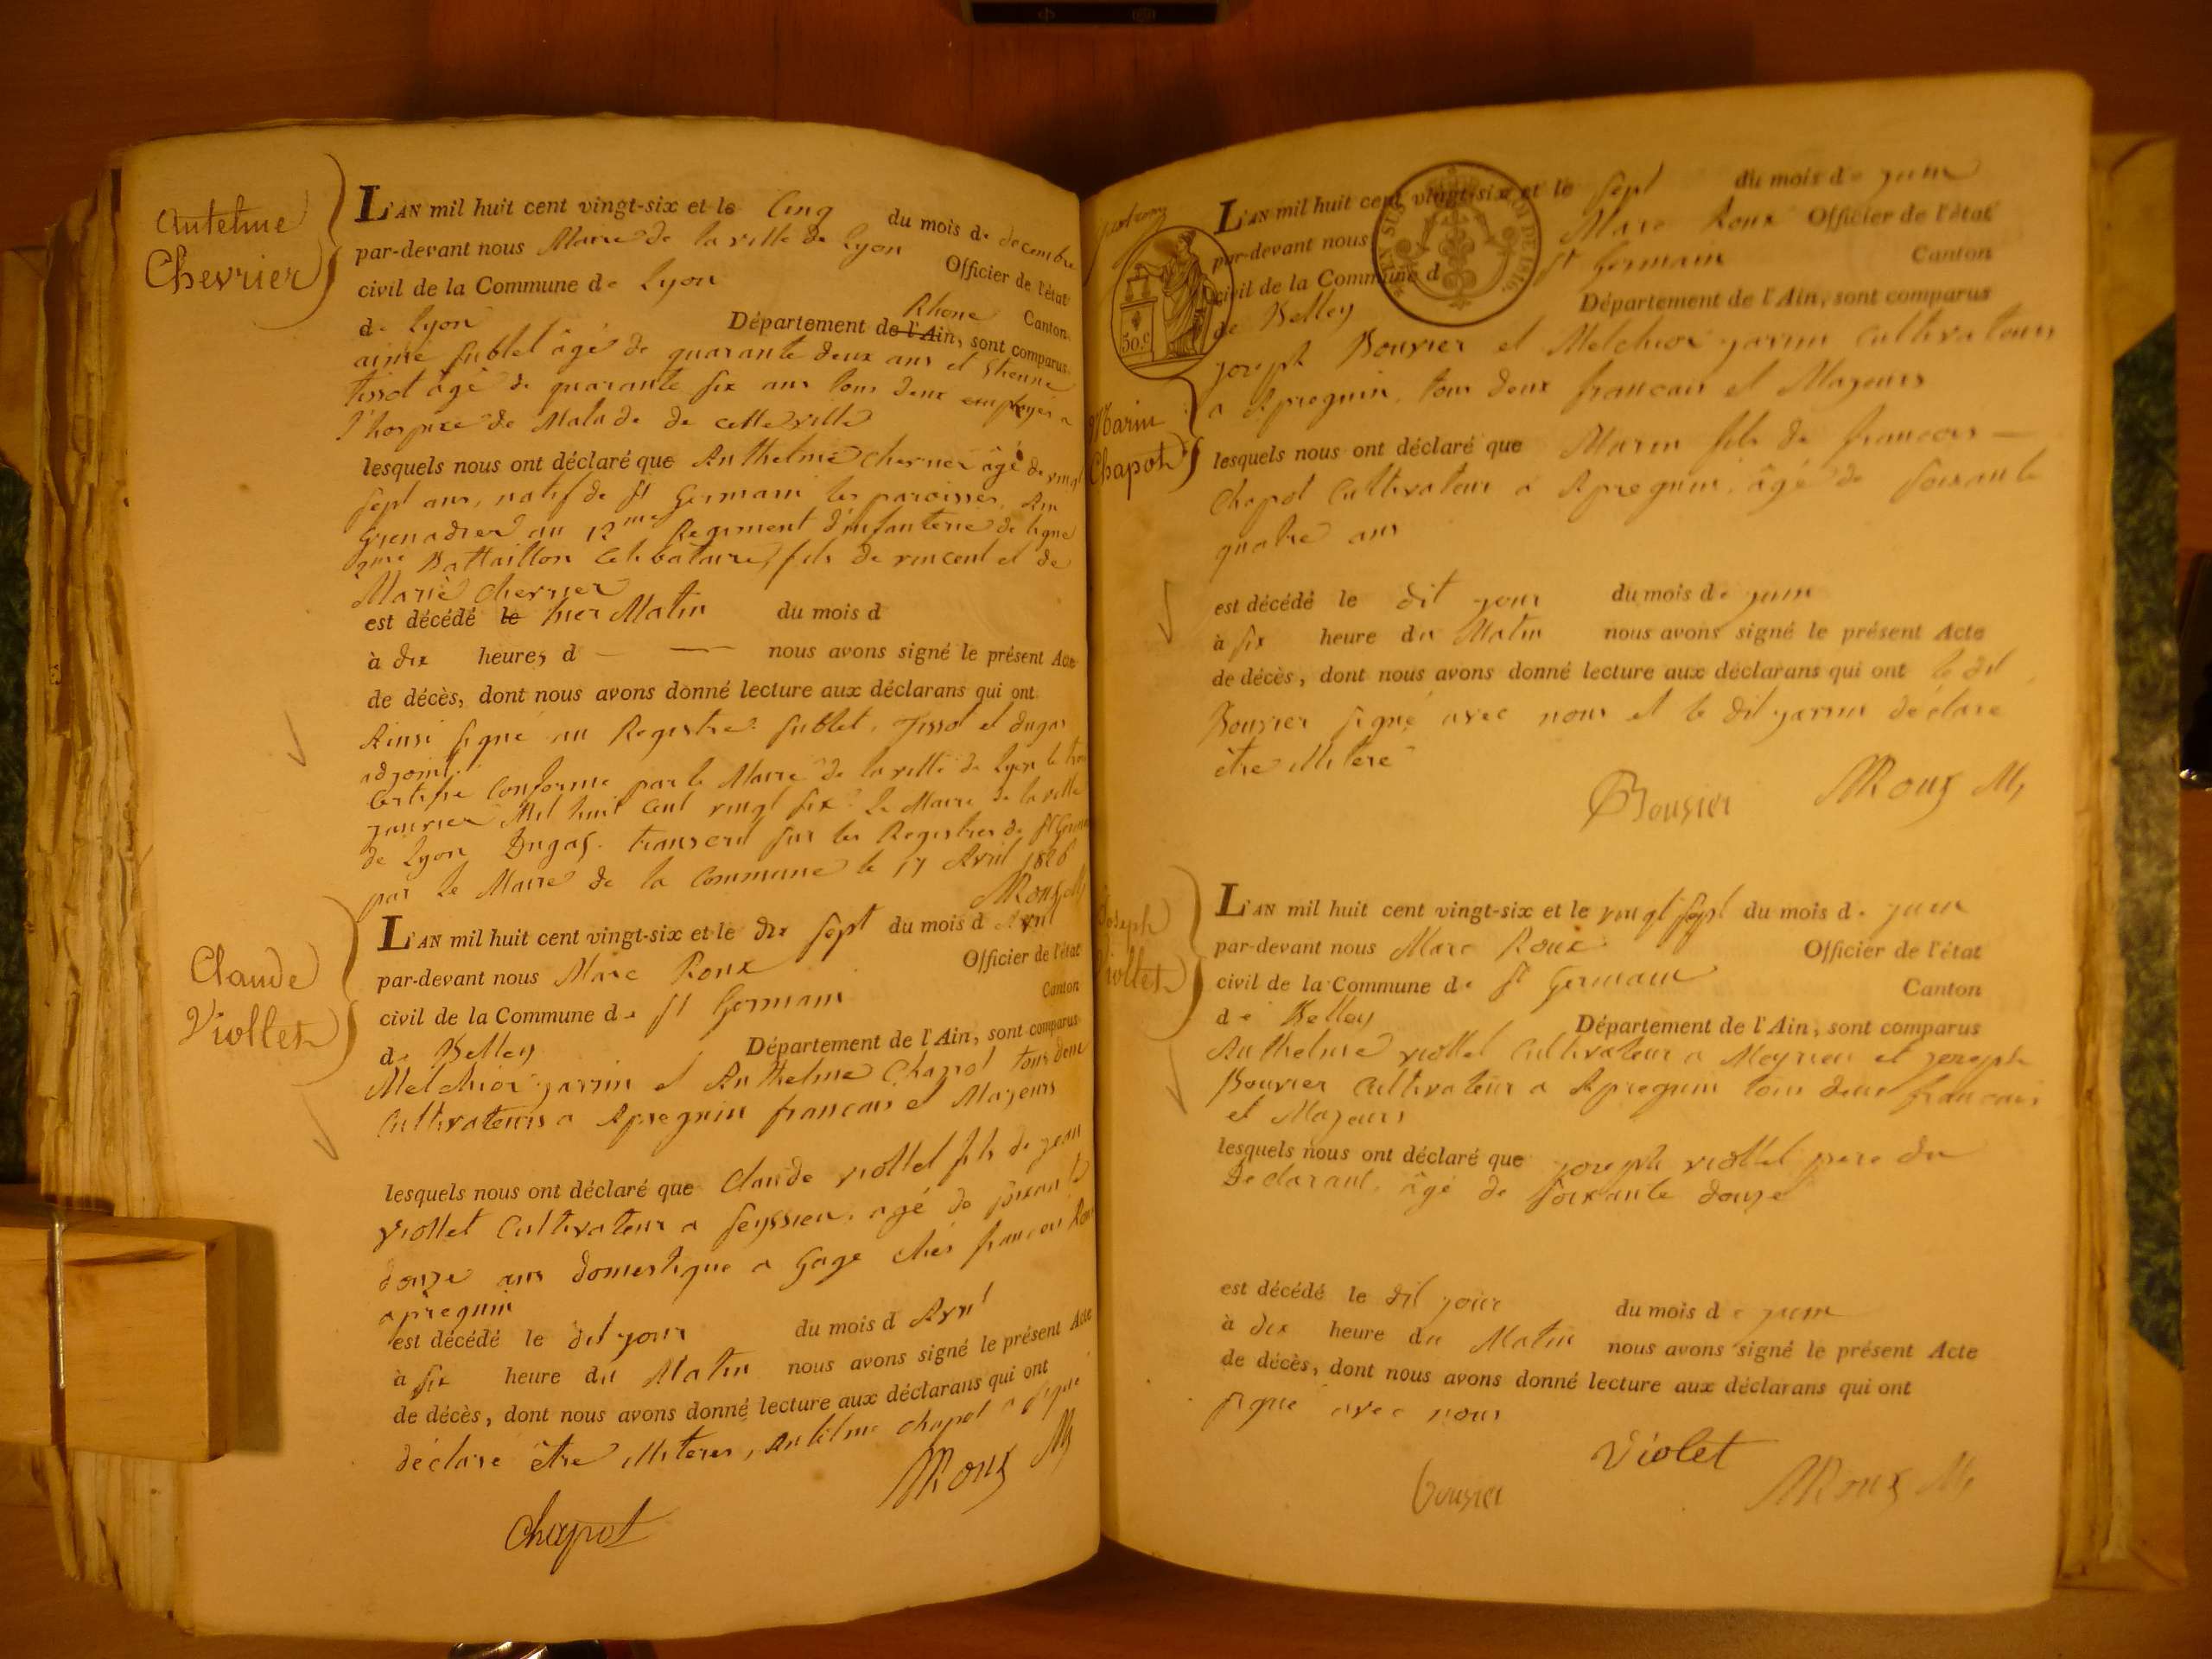 Antelme
Chevrier
L'AN mil huit cent vingt-six et le Cinq du mois de decembre
par-devant nous Maire de la ville de Lyon Officier de l'état
civil de la Commune de Lyon Canton
de Lyon Département de l'Ain, Rhone sont comparus
aimé Sublet âgé de quarante deux ans et Etienne
tissot âgé de quarante six ans tous deux employés a
l'hospice de Malade de cette ville
lesquels nous ont déclaré que Anthelme Chevrier âgé de vingt
sept ans, natif de St Germain les paroisses, Ain
Grenadier au 12me Regiment d'infanterie de ligne
2me Battaillon Celibataire, fils de vincent et de
Marie Chevrier
est décédé le hier Matin du mois d
à dix heures d — — nous avons signé le présent Acte
de décès, dont nous avons donné lecture aux déclarans qui ont
Ainsi signé au Registre Sublet, Tissot et Dugas
adjoint.
Certifié Conforme par le Maire de la ville de Lyon le
janvier Mil huit Cent vingt six. Le Maire de la ville
de Lyon Dugas. transcrit sur les Registres de St Germain
par Le Maire de la Commune le 17 Avril 1826
MRoux M
Claude
Viollet
L'AN mil huit cent vingt-six et le dix sept du mois d Avril
par-devant nous Marc Roux Officier de l'état
civil de la Commune de St Germain Canton
de Belley Département de l'Ain, sont comparus
Melchior jarrin et Anthelme Chapot tous deux
Cultivateurs a Apregnin francais et Majeurs
lesquels nous ont déclaré que Claude viollet fils de jean
viollet Cultivateur a Seyssieu, agé de soixante
douze ans domestique a Gage chés francois Roux
apregnin
est décédé le dit jour du mois d Avril
à six heure du Matin nous avons signé le présent Acte
de décès, dont nous avons donné lecture aux déclarans qui ont
déclaré être illiteres, Antelme chapot a signé
MRoux M
Chapot
30.c
Marin
Chapot
L'AN mil huit cent vingt-six et le sept du mois de juin
par-devant nous Marc Roux Officier de l'état
civil de la Commune d St Germain Canton
de Belley Département de l'Ain, sont comparus
joseph Bouvier et Melchior jarrin Cultivateurs
a Apregnin, tous deux francais et Majeurs
lesquels nous ont déclaré que Marin fils de francois —
Chapot Cultivateur a Apregnin, âgé de soixante
quatre ans
est décédé le dit jour du mois de juin
à six heure du Matin nous avons signé le présent Acte
de décès, dont nous avons donné lecture aux déclarans qui ont le dit
Bouvier signé avec nous et le dit jarrin déclaré
être illiteré
Bouvier MRoux M
Joseph
Viollet
L'AN mil huit cent vingt-six et le vingt sept du mois de juin
par-devant nous Marc Roux Officier de l'état
civil de la Commune de St Germain Canton
de Belley Département de l'Ain, sont comparus
Anthelme viollet Cultivateur a Meyrieu et joseph
Bouvier Cultivateur a Apregnin tous deux francais
et Majeurs
lesquels nous ont déclaré que joseph viollet pere du
Déclarant, âgé de soixante douze
est décédé le dit jour du mois de juin
à dix heure du Matin nous avons signé le présent Acte
de décès, dont nous avons donné lecture aux déclarans qui ont
signé avec nous
Violet
bouvier MRoux M